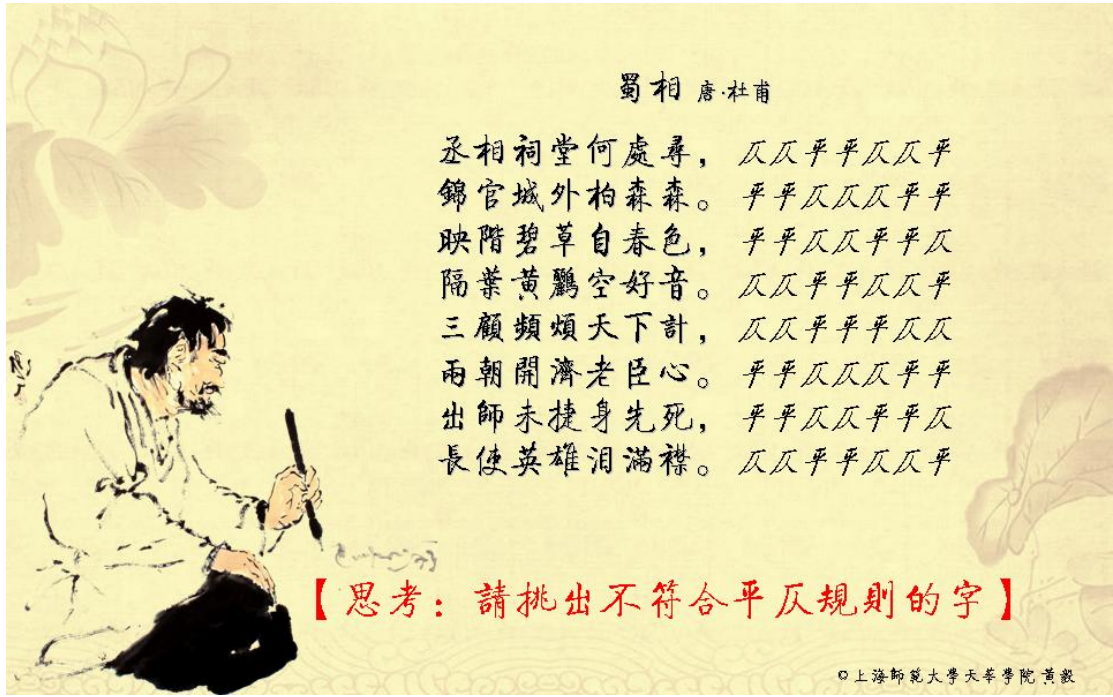 蜀相 唐·杜甫
丞相祠堂何處尋，仄仄平平仄仄平
錦官城外柏森森。平平仄仄仄平平
映階碧草自春色，平平仄仄平平仄
隔葉黃鸝空好音。仄仄平平仄仄平
三顧頻煩天下計，仄仄平平平仄仄
兩朝開濟老臣心。平平仄仄仄平平
出師未捷身先死，平平仄仄平平仄
長使英雄泪滿襟。仄仄平平仄仄平
【思考：請挑出不符合平仄規則的字】
©上海師範大學天華學院 黃毅